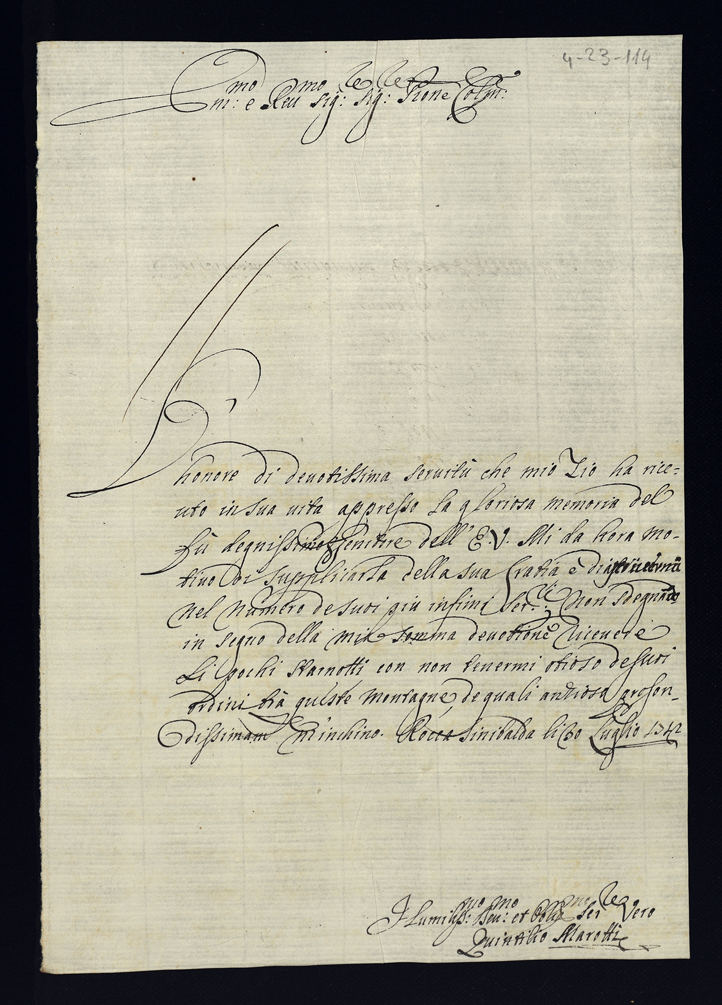 4-23-114
Em:mo e Reu:mo Sig:re Sig:re Prone Colmo:
L'honore di devotissima servitù che mio Zio ha rice=
uto in sua vita appresso la gloriosa memoria del
fù degnissimo Genitore dell' E.V. Mi da hora mo=
tivo di supplicarla della sua Gratia è di
nel numero de suoi più infimi Ser:ri Non sdegnādo
in segno della mia somma devotione ricevere
Li pochi starnotti con non tenermi otioso de suoi
ordini trà queste montagne, de quali ansioso profon=
dissimam:te m'inchino. Rocca Sinibalda li 30 Luglio
Humiliss:mo Deu:mo et Obligmo Ser:re Vero
Quintilio Marotti